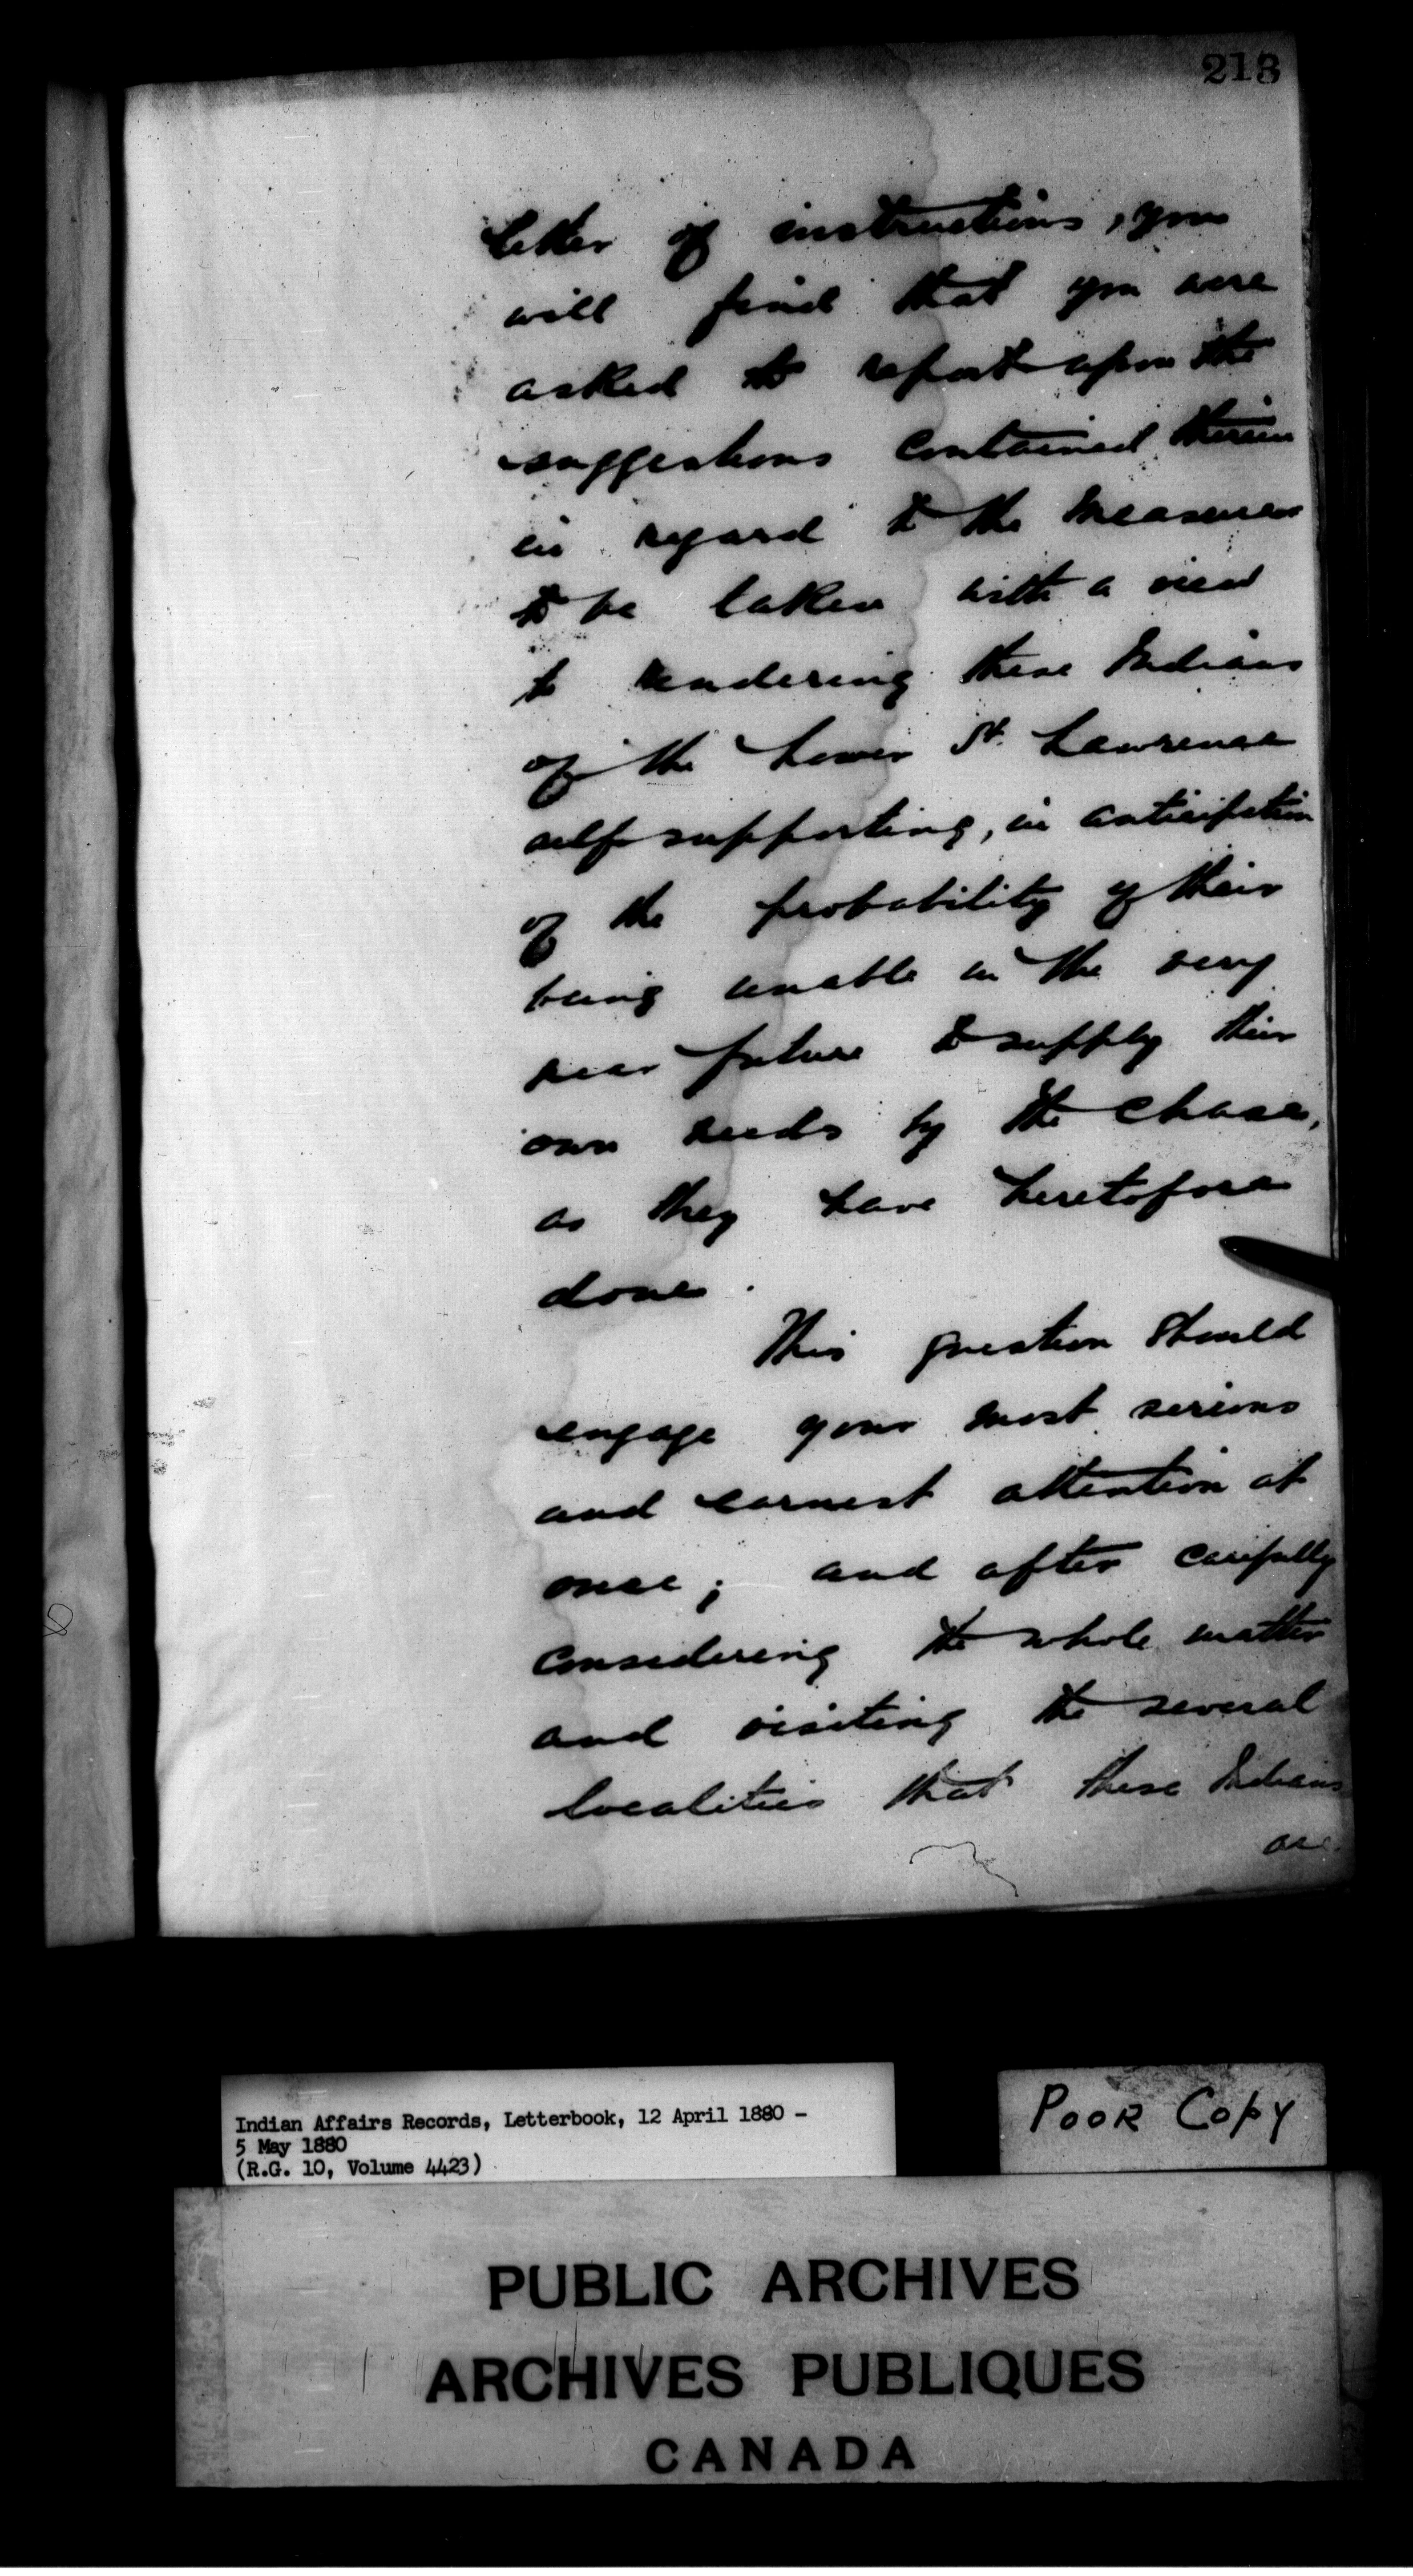 213
letter of instructions, you
will find that you were
asked to report upon the
suggestions contained therein
in regard to the measures
to be taken with a view
to rendering these Indians
of the Lower St. Lawrence
self supporting, in anticipation
of the probability of their
being unable in the very
near future to supply their
own needs by the chase,
as they have heretofore
done.
This question should
engage your most serious
and earnest attention at
once; and after carefully
considering the whole matter
and visiting the several
localities that these Indians
are
Indian Affairs Records, Letterbook, 12 April 1880 -
5 May 1880
(R.G. 10, Volume 4423)
POOR COPY
PUBLIC ARCHIVES
ARCHIVES PUBLIQUES
CANADA